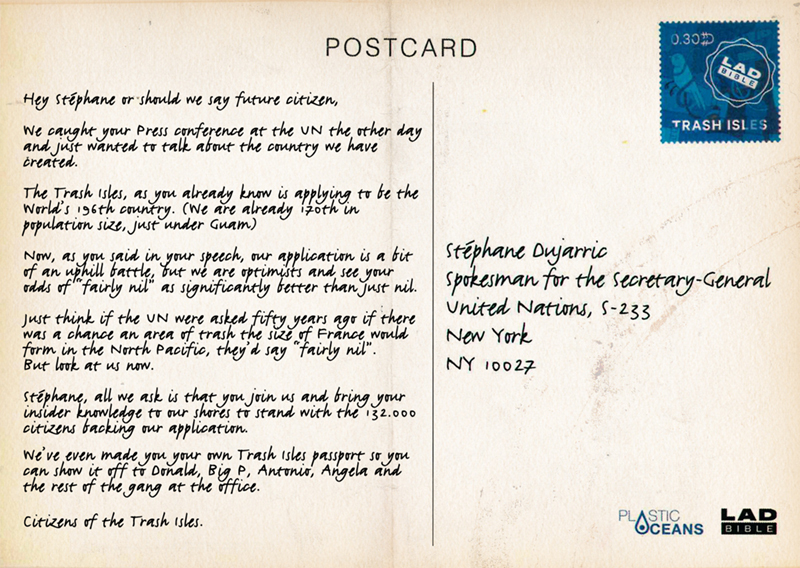 POSTCARD
Hey Stéphane or should we say future citizen,
We caught your Press conference at the UN the other day
and just wanted to talk about the country we have
created.
The Trash Isles, as you already know is applying to be the
World's 196th country. (We are already 170th in
population size, just under Guam)
Now, as you said in your speech, our application is a bit
of an uphill battle, but we are optimists and see your
odds of "fairly nil" as significantly better than just nil.
Just think if the UN were asked fifty years ago if there
was a chance an area of trash the size of France would
form in the North Pacific, they'd say "fairly nil".
But look at us now.
Stéphane, all we ask is that you join us and bring your
insider knowledge to our shores to stand with the 132.000
citizens backing our application.
We've even made you your own Trash Isles passport so you
can show it off to Donald, Big P, Antonio, Angela and
the rest of the gang at the office.
Citizens of the Trash Isles.
0.30
LAD
BIBLE
TRASH ISLES
Stéphane Dujarric
Spokesman for the Secretary-General
United Nations, S-233
New York
NY 10027
PLASTIC
OCEANS
LAD
BIBLE